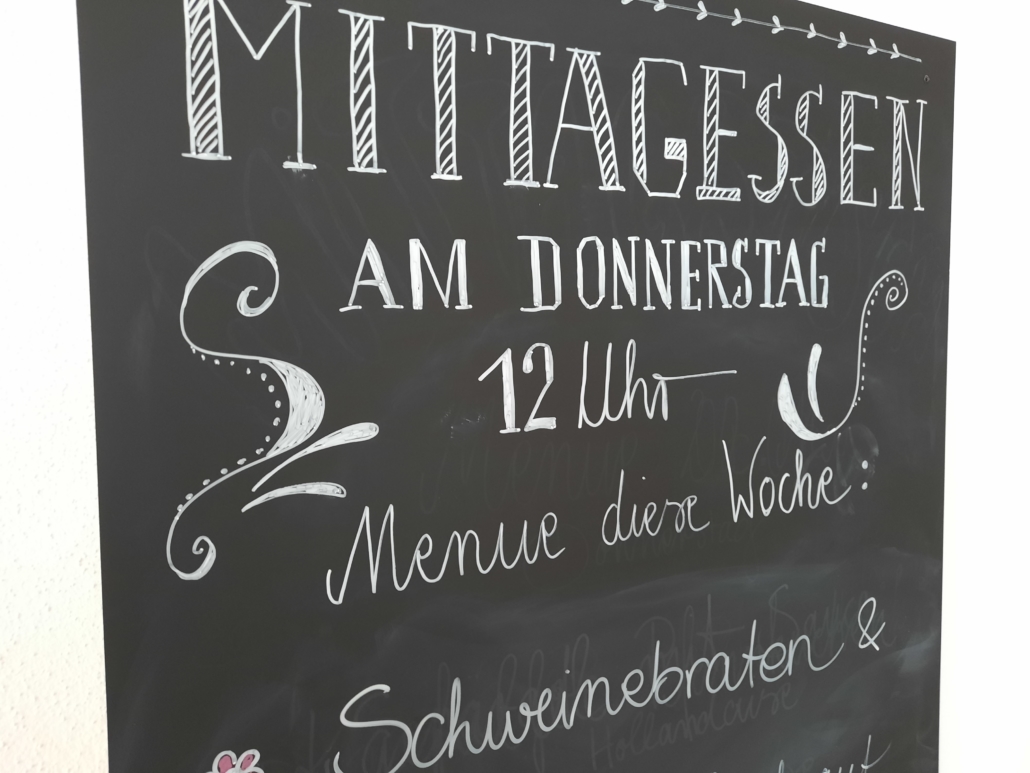 MITTAGESSEN
AM DONNERSTAG
12 Uhr
Menue diese Woche:
Schweinebraten &